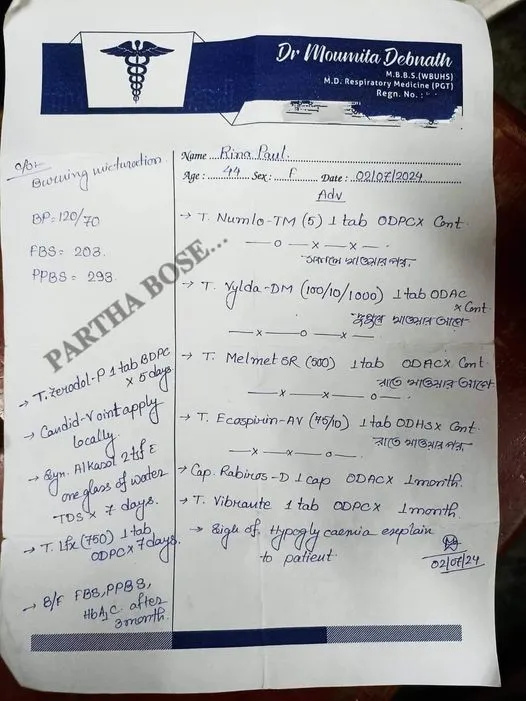 Dr Moumita Debnath
M.B.B.S.(WBUHS)
M.D. Respiratory Medicine (PGT)
Regn. No. :
Name Rina Paul.
Age : 44 Sex : F Date : 02/07/2024
Adv
c/o:-
Burning micturation.
BP = 120/70
FBS = 203.
PPBS = 293.
→ T. Zerodol-P 1 tab BDPC
x 5 days.
→ Candid-V oint apply
locally.
→ Syp. Alkasol 2 tsf c̄
one glass of water
TDS x 7 days.
→ T. Lfx (750) 1 tab
ODPC x 7 days.
→ B/F FBS, PPBS,
HbA1C after
3 month.
→ T. Numlo-TM (5) 1 tab ODPC x Cont.
— o — x — x —
সকালে খাওয়ার পর.
→ T. Vylda-DM (100/10/1000) 1 tab ODAC
x Cont
দুপুরে খাওয়ার আগে
— x — o — x —
→ T. Melmet SR (500) 1 tab ODAC x Cont.
রাতে খাওয়ার আগে.
— x — x — o
→ T. Ecosprin-AV (75/10) 1 tab ODHS x Cont.
রাতে খাওয়ার পর.
— x — x — o
→ Cap. Rabiros-D 1 cap ODAC x 1 month.
→ T. Vibraute 1 tab ODPC x 1 month.
→ Sign of Hypoglycaemia explain
to patient.
02/07/24
PARTHA BOSE...